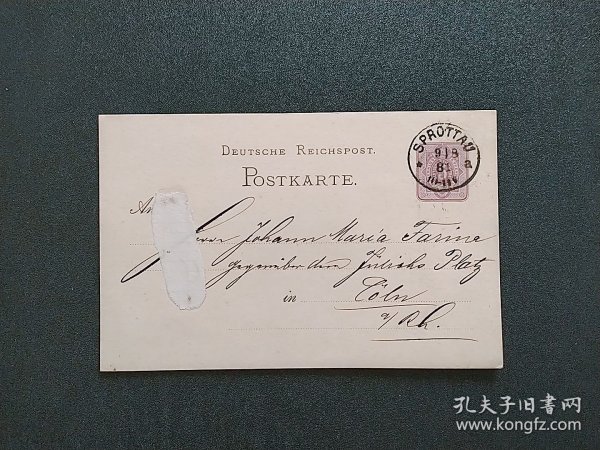 DEUTSCHE REICHSPOST.
POSTKARTE.
SPROTTAU
9/8
81
a
An
Herrn Johann Maria Farina
gegenüber dem Jülichs Platz
in Cöln
a/Rh.
孔夫子旧书网
www.kongfz.com